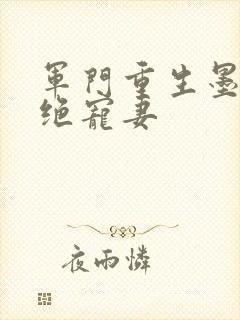 軍門重生墨
绝寵妻
夜雨憐